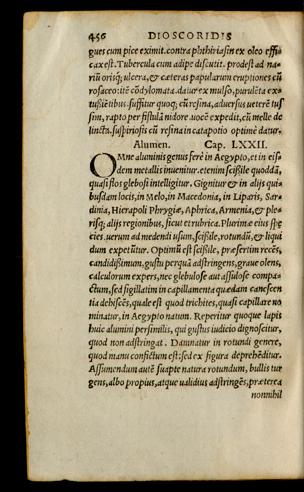 456 DIOSCORIDIS
gues cum pice eximit. contra phthiriasin ex oleo effi-
cax est. Tubercula cum adipe discutit. prodest ad na-
riũ orisq; ulcera, & cæteras papularum eruptiones cũ
rosaceo: itẽ cõdylomata. datur ex mulso, purulẽta ex-
tußiẽtibus. suffitur quoq; cũ resina, aduersus ueterẽ tus
sim, rapto per fistulã nidore. uocẽ expedit, cũ melle de
lincta. suspiriosis cũ resina in catapotio optime datur.
Alumen. Cap. LXXII.
OMne aluminis genus fere in Aegypto, et in eis-
dem metallis inuenitur. etenim scißile quoddã,
quasi flos glebosi intelligitur. Gignitur & in alijs qui-
busdam locis, in Melo, in Macedonia, in Liparis, Sar-
dinia, Hierapoli Phrygiæ, Aphrica, Armenia, & ple-
risq; alijs regionibus, sicut et rubrica. Plurimæ eius spe
cies. uerum ad medendi usum, scißile, rotundũ, & liqui
dum expetũtur. Optimũ est scißile, præsertim recẽs,
candidißimum, gustu perquã adstringens, graue olens,
calculorum expers, nec glebose aut assulose compa-
ctum, sed sigillatim in capillamenta quædam canescen
tia dehiscẽs, quale est quod trichites, quasi capillare no
minatur, in Aegypto natum. Reperitur quoque lapis
huic alumini persimilis, qui gustus iudicio dignoscitur,
quod non adstringat. Damnatur in rotundi genere,
quod manu confictum est: sed ex figura deprehẽditur.
Assumendum autẽ suapte natura rotundum, bullis tur
gens, albo propius, atque ualidius adstringẽs, præterea
nonnihil